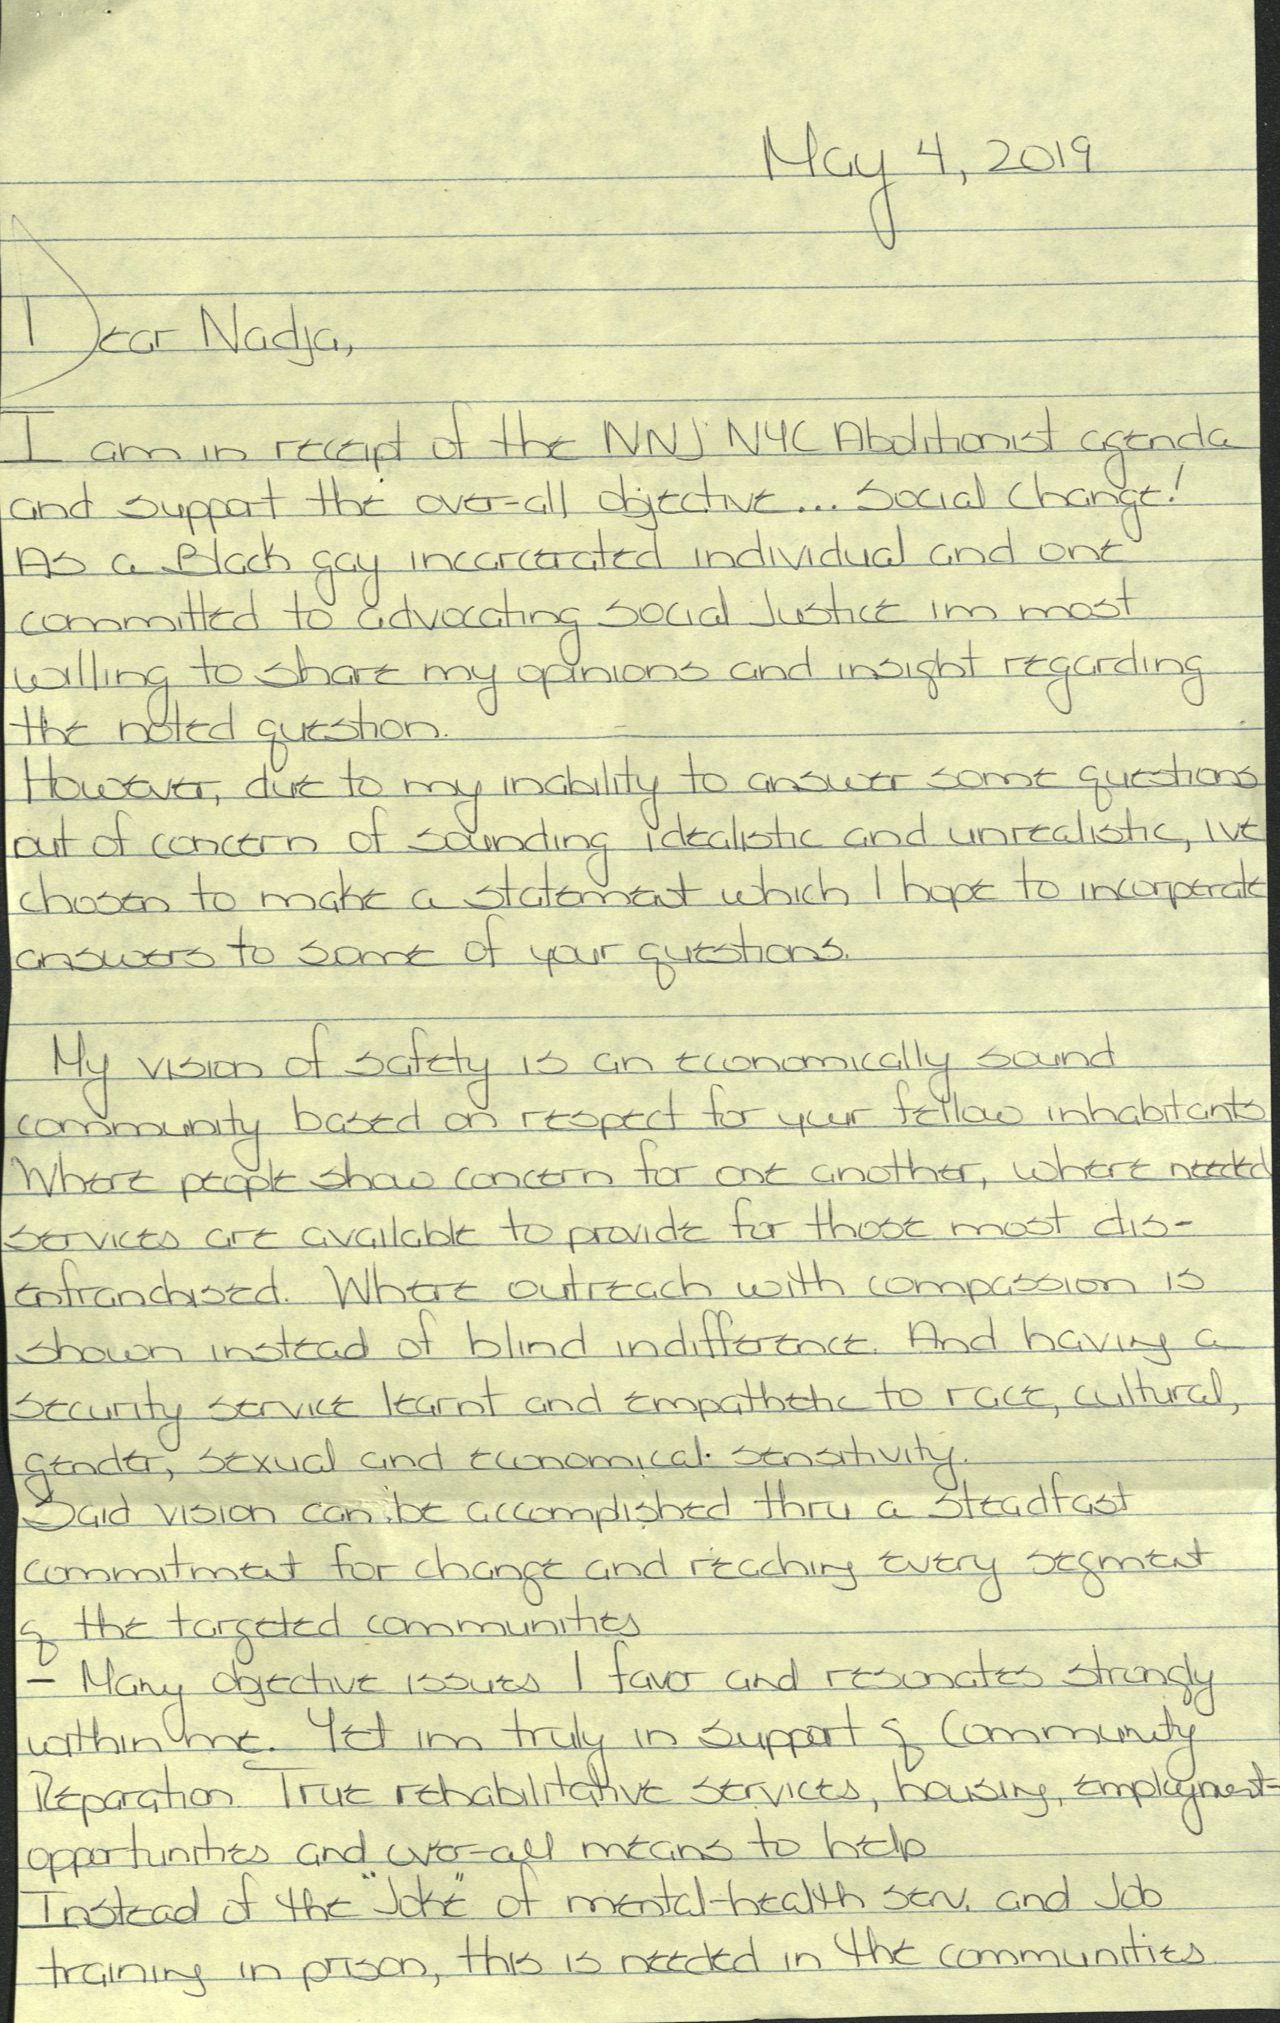 May 4, 2019
Dear Nadja,
I am in receipt of the NNJ NYC Abolitionist agenda
and support the over-all objective... Social Change!
As a Black gay incarcerated individual and one
committed to advocating social Justice im most
willing to share my opinions and insight regarding
the noted question.
However, due to my inability to answer some questions
out of concern of sounding idealistic and unrealistic, ive
chosen to make a statement which I hope to incorperate
answers to some of your questions.
My vision of safety is an economically sound
community based on respect for your fellow inhabitants
Where people show concern for one another, where needed
services are available to provide for those most dis-
enfranchised. Where outreach with compassion is
shown instead of blind indifference. And having a
security service learnt and empathetic to race, cultural,
gender, sexual and economical sensitivity.
Said vision can be accomplished thru a steadfast
commitment for change and reaching every segment
of the targeted communities
- Many objective issues I favor and resonates strongly
within me. Yet im truly in support of Community
Reparation. True rehabilitative services, housing, employment-
opportunities and over-all means to help
Instead of the "Joke" of mental-health serv. and Job
training in prison, this is needed in the communities.